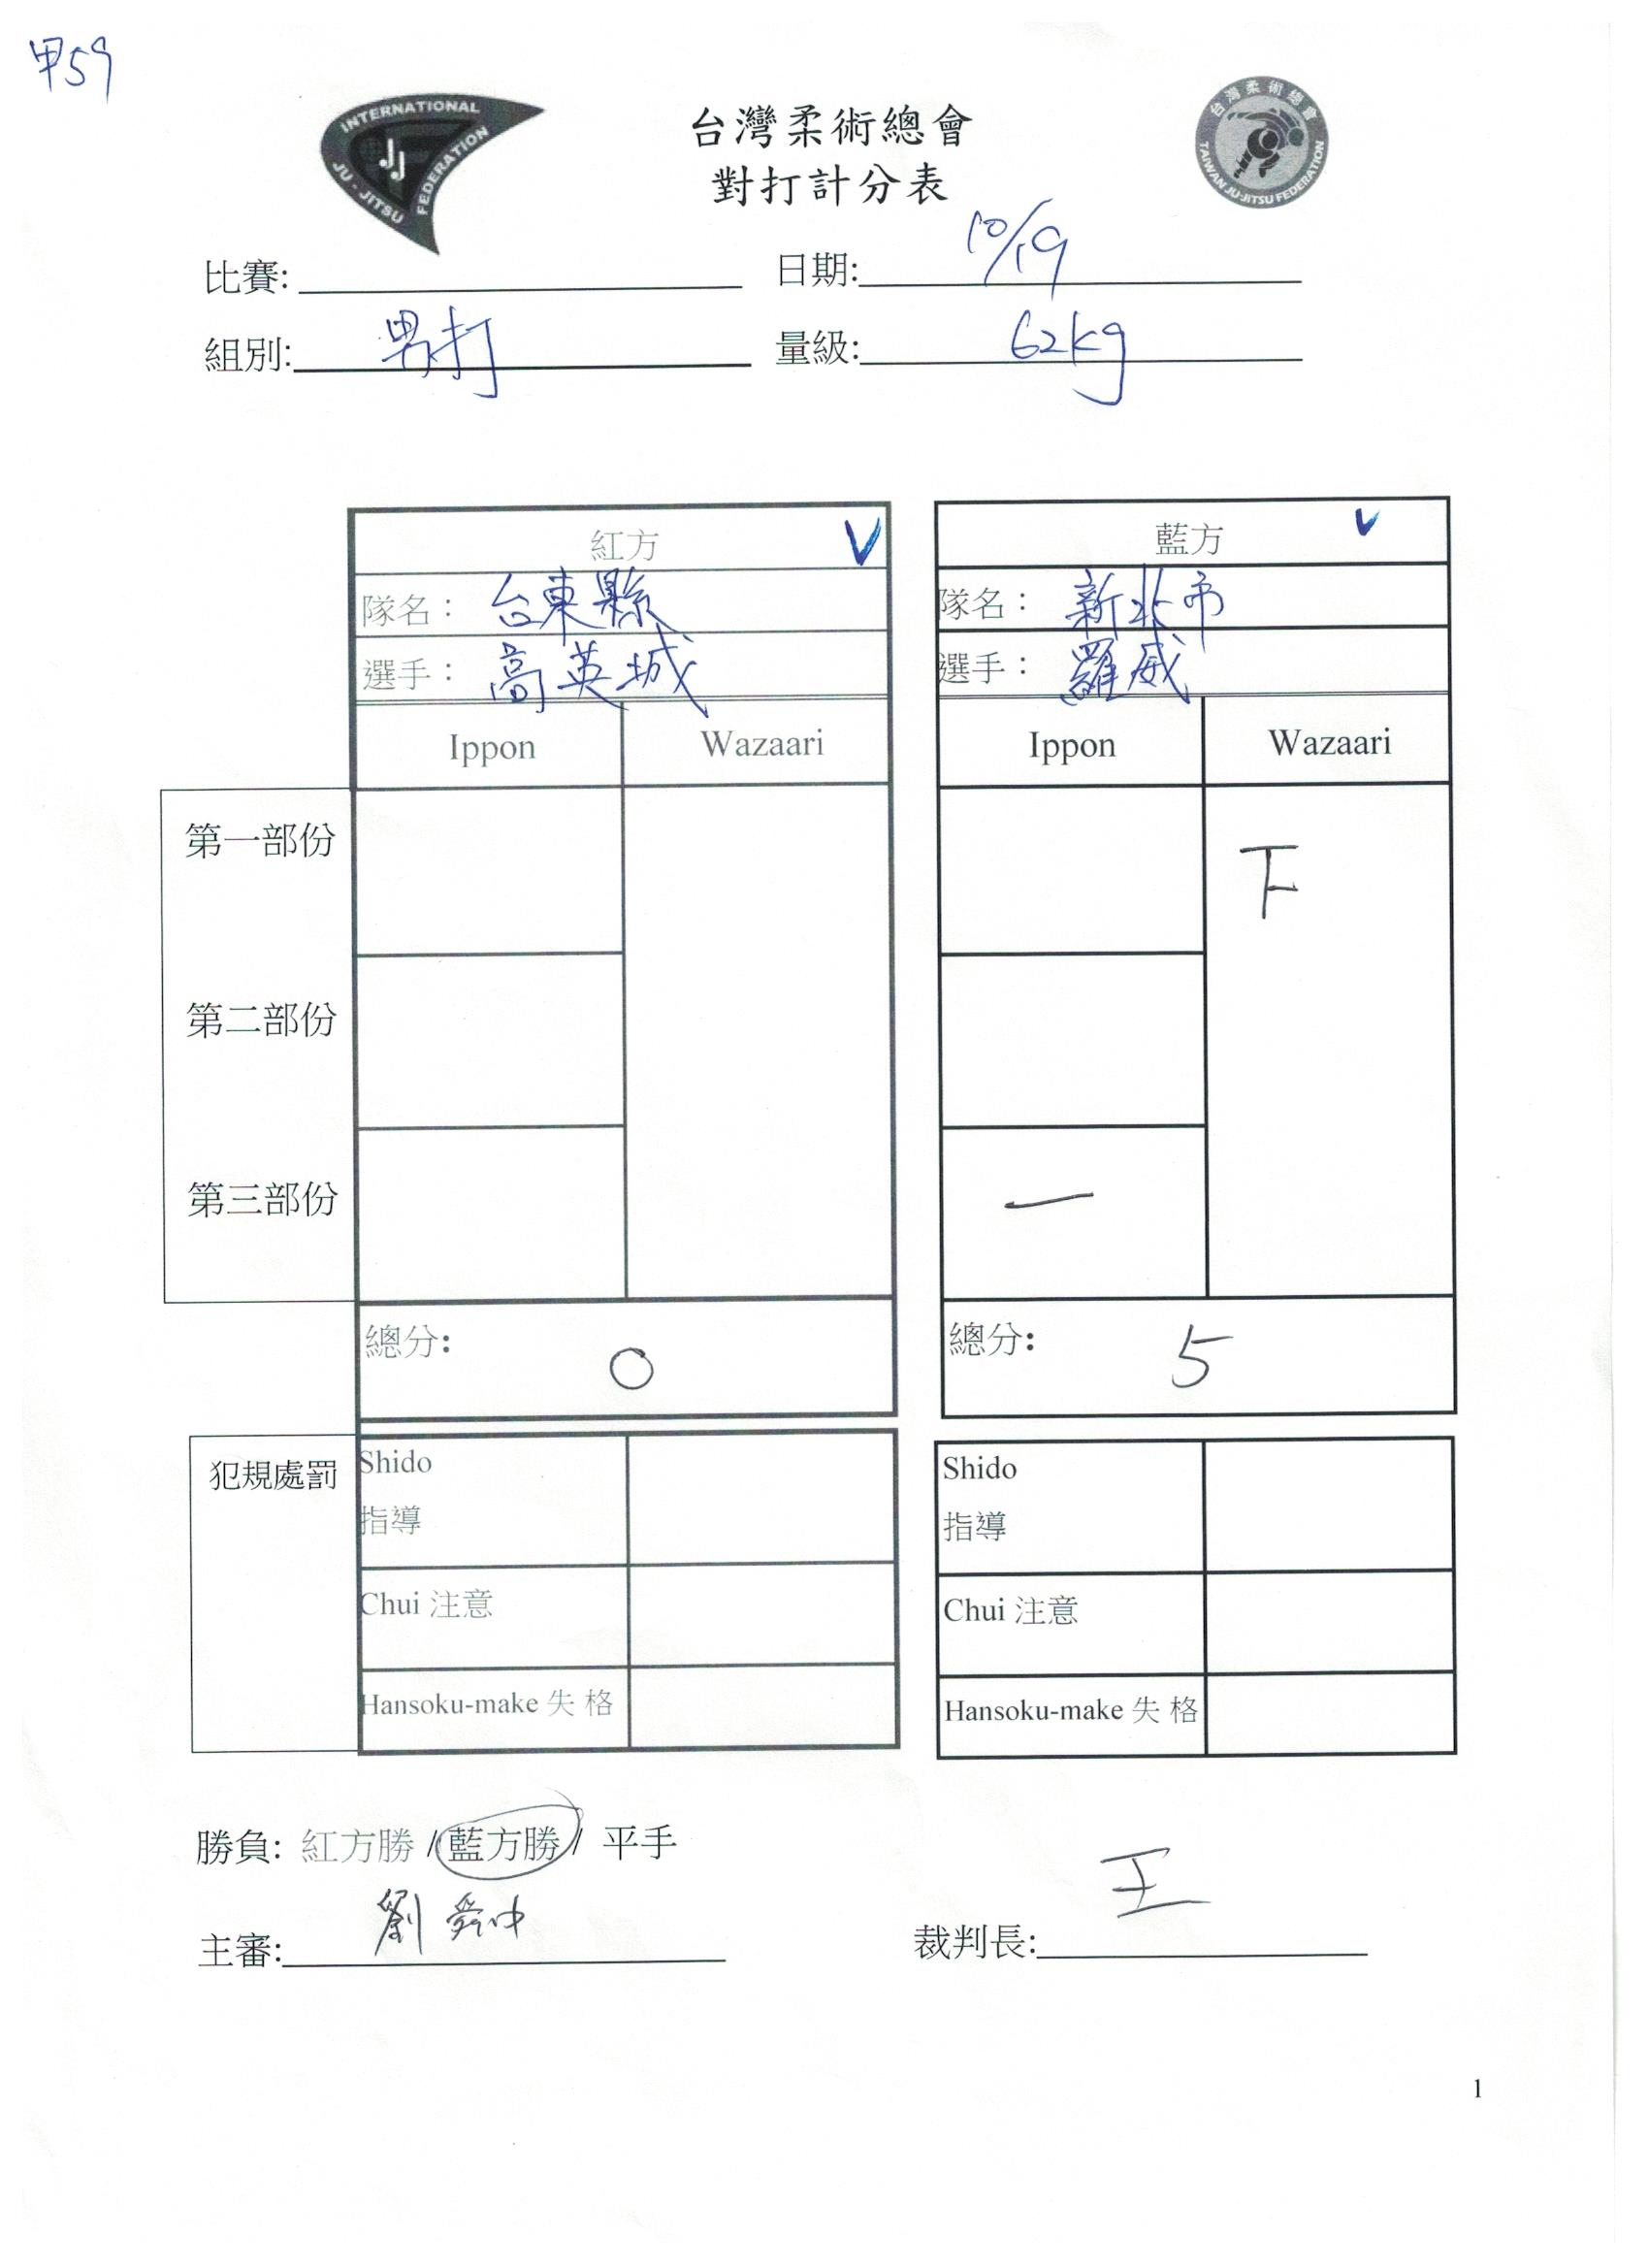 甲59
INTERNATIONAL
JJ
JU-JITSU FEDERATION
台灣柔術總會
TAIWAN JU-JITSU FEDERATION
台灣柔術總會
對打計分表
比賽: 日期: 10/19
組別: 男打 量級: 62kg
紅方 V 藍方 V
隊名： 台東縣 隊名： 新北市
選手： 高英城 選手： 羅威
Ippon Wazaari Ippon Wazaari
第一部份
第二部份
第三部份 一
總分: 0 總分: 5
犯規處罰 Shido Shido
指導 指導
Chui 注意 Chui 注意
Hansoku-make 失 格 Hansoku-make 失 格
勝負: 紅方勝 / 藍方勝 / 平手
主審: 劉 裁判長: 王
1